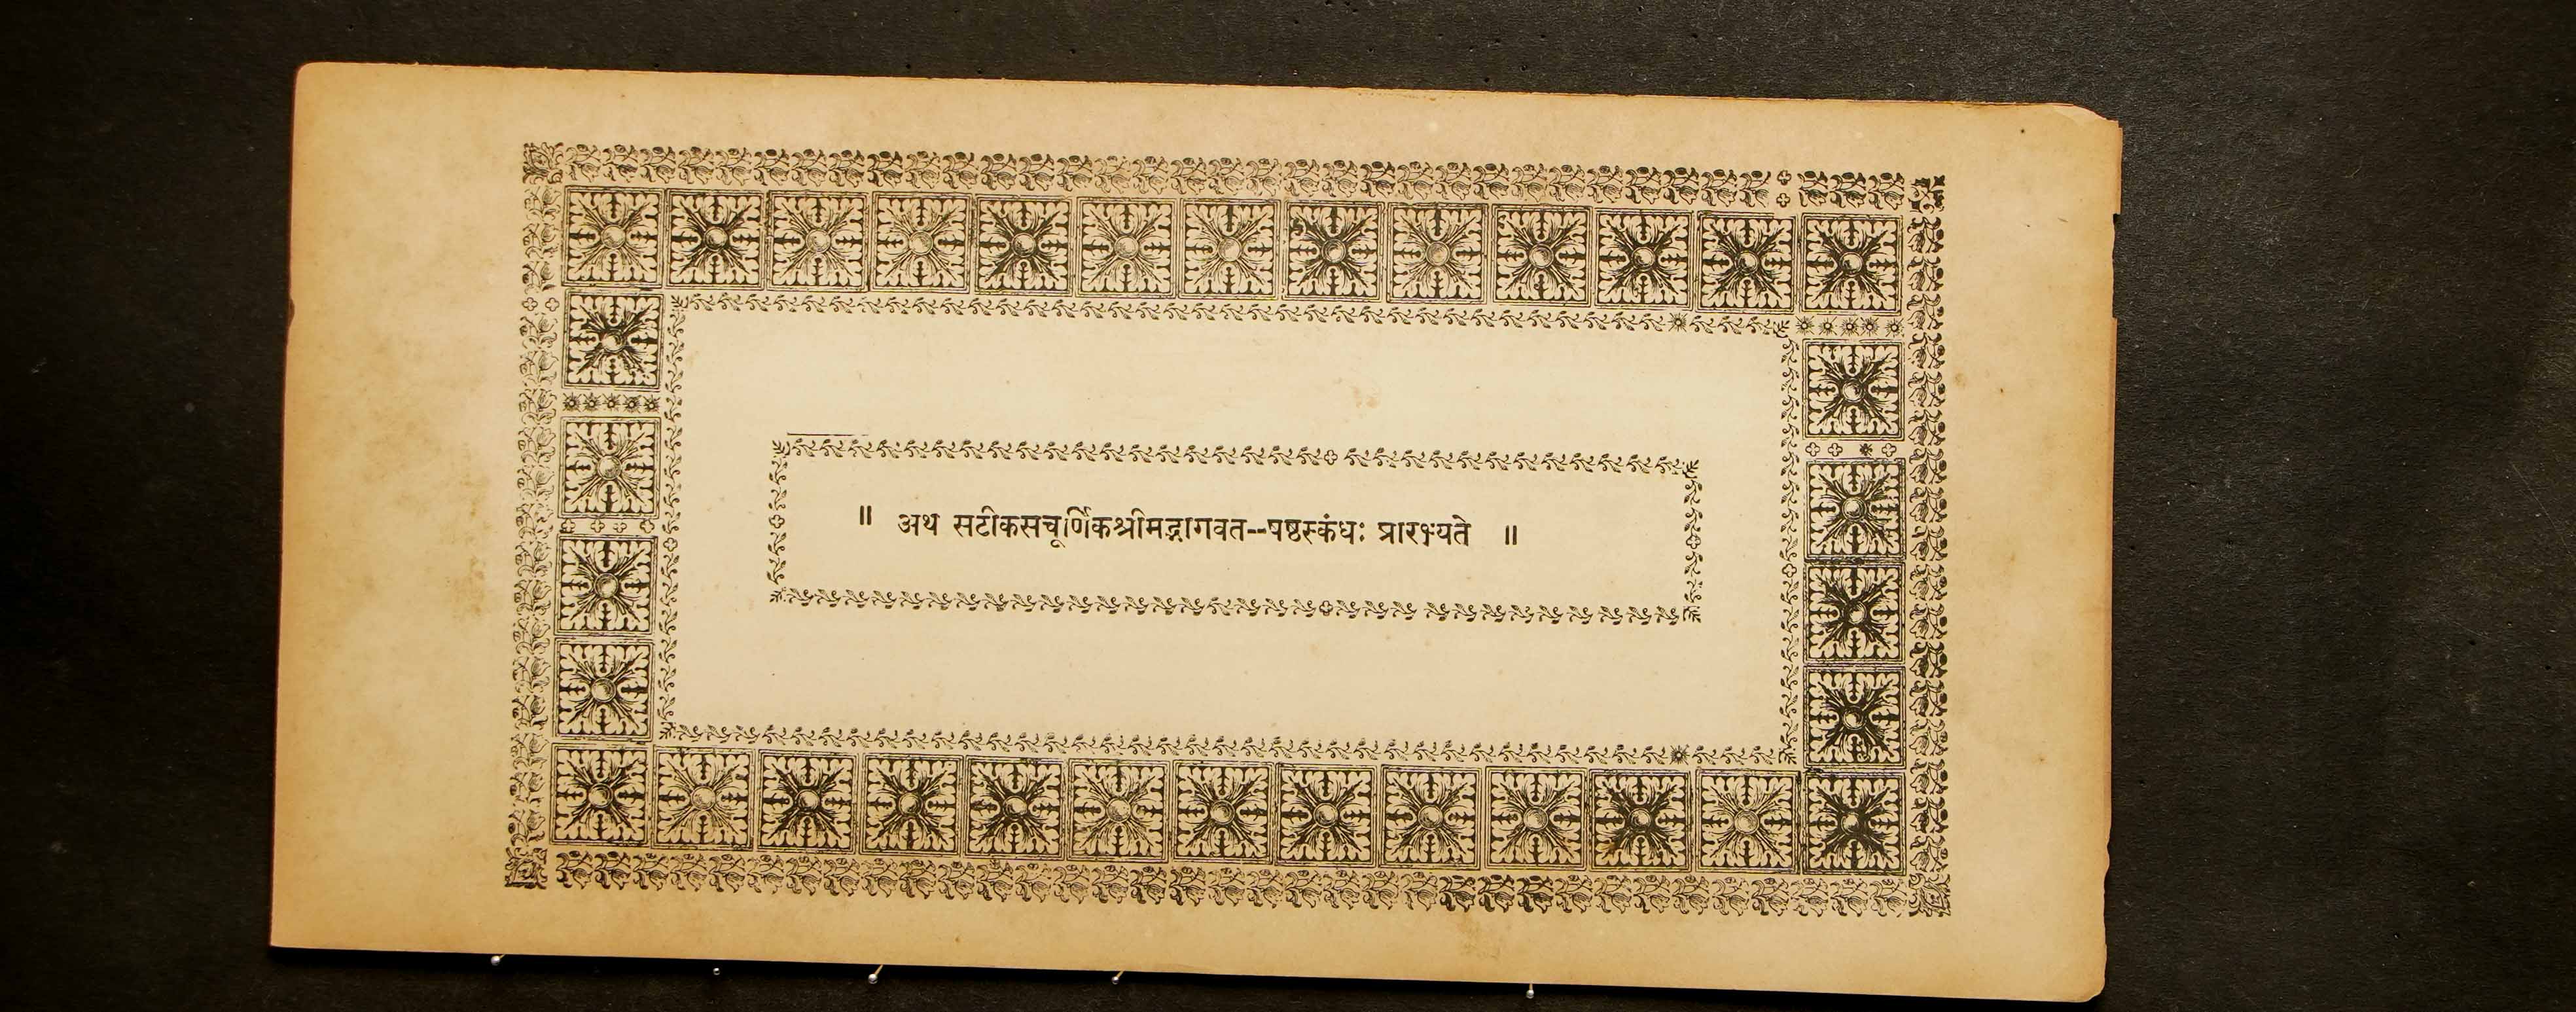 ॥ अथ सटीकसचूर्णिकश्रीमद्भागवत--षष्ठस्कंधः प्रारभ्यते ॥